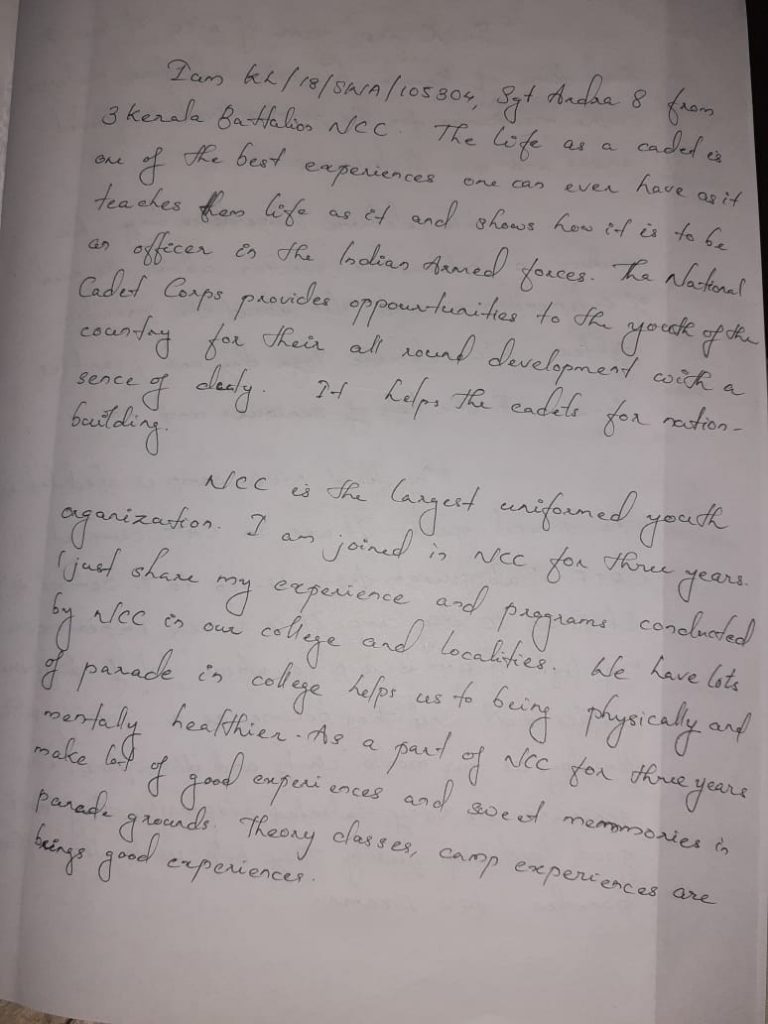 I am KL/18/SWA/105304, Sgt Ardra S from
3 Kerala Battalion NCC. The life as a cadet is
one of the best experiences one can ever have as it
teaches them life as it and shows how it is to be
an officer in the Indian Armed forces. The National
Cadet Corps provides oppourtunities to the youth of the
country for their all round development with a
sence of duty. It helps the cadets for nation-
building.
NCC is the largest uniformed youth
organization. I am joined in NCC for three years.
I just share my experience and programs conducted
by NCC in our college and localities. We have lots
of parade in college helps us to being physically and
mentally healthier. As a part of NCC for three years
make lot of good experiences and sweet memmories in
parade grounds. Theory classes, camp experiences are
brings good experiences.